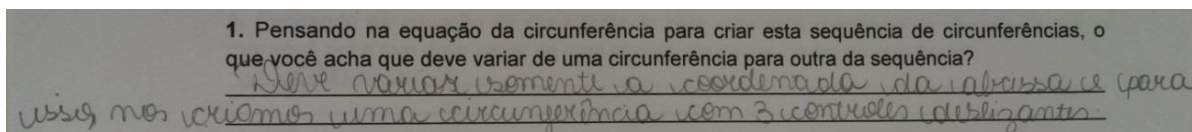 1. Pensando na equação da circunferência para criar esta sequência de circunferências, o
que você acha que deve variar de uma circunferência para outra da sequência?
Deve variar somente a coordenada da abcissa e para
isso, nos criamos uma circunferência com 3 controles deslizantes.